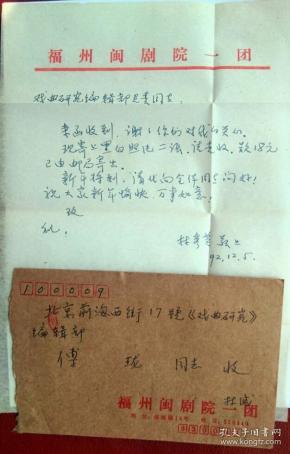 福州闽剧院一团
戏曲研究编辑部负责同志
来函收到，谢谢你们对我的关心
现寄上黑白照片二张，请查收，款18元
已由邮局寄出。
新年特刊，请代向全体同志问好！
祝大家新年愉快，万事如意！
致
礼
上
92.12.5.
100009
北京前海西街17号《戏曲研究》
编辑部
傅 珑 同志 收
福州闽剧院一团
孔夫子旧书网